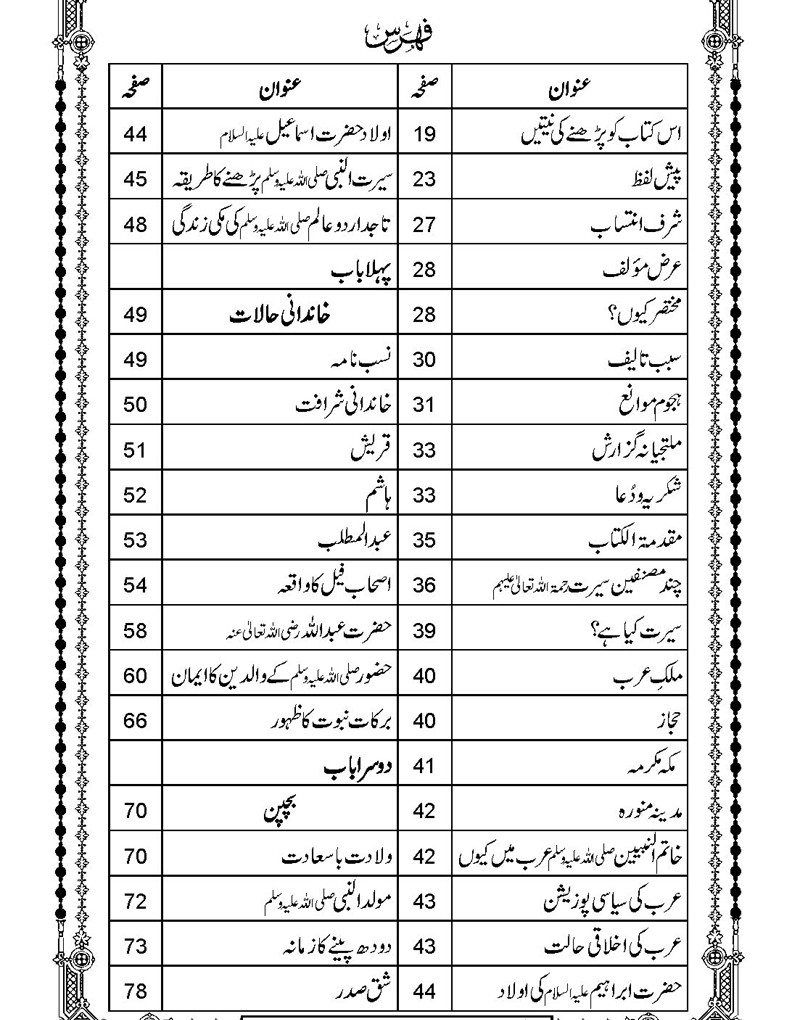 فہرس
عنوان صفحہ عنوان صفحہ
اس کتاب کو پڑھنے کی نیتیں 19 اولاد حضرت اسماعیل علیہ السلام 44
پیش لفظ 23 سیرت النبی صلی اللہ علیہ وسلم پڑھنے کا طریقہ 45
شرف انتساب 27 تاجدار دو عالم صلی اللہ علیہ وسلم کی مکی زندگی 48
عرض مؤلف 28 پہلا باب
مختصر کیوں؟ 28 خاندانی حالات 49
سبب تالیف 30 نسب نامہ 49
ہجوم موانع 31 خاندانی شرافت 50
ملتجیانہ گزارش 33 قریش 51
شکریہ و دُعا 33 ہاشم 52
مقدمۃ الکتاب 35 عبدالمطلب 53
چند مصنفین سیرت رحمۃ اللہ تعالیٰ علیہم 36 اصحاب فیل کا واقعہ 54
سیرت کیا ہے؟ 39 حضرت عبداللہ رضی اللہ تعالیٰ عنہ 58
ملکِ عرب 40 حضور صلی اللہ علیہ وسلم کے والدین کا ایمان 60
حجاز 40 برکات نبوت کا ظہور 66
مکہ مکرمہ 41 دوسرا باب
مدینہ منورہ 42 بچپن 70
خاتم النبیین صلی اللہ علیہ وسلم عرب میں کیوں 42 ولادت باسعادت 70
عرب کی سیاسی پوزیشن 43 مولد النبی صلی اللہ علیہ وسلم 72
عرب کی اخلاقی حالت 43 دودھ پینے کا زمانہ 73
حضرت ابراہیم علیہ السلام کی اولاد 44 شق صدر 78